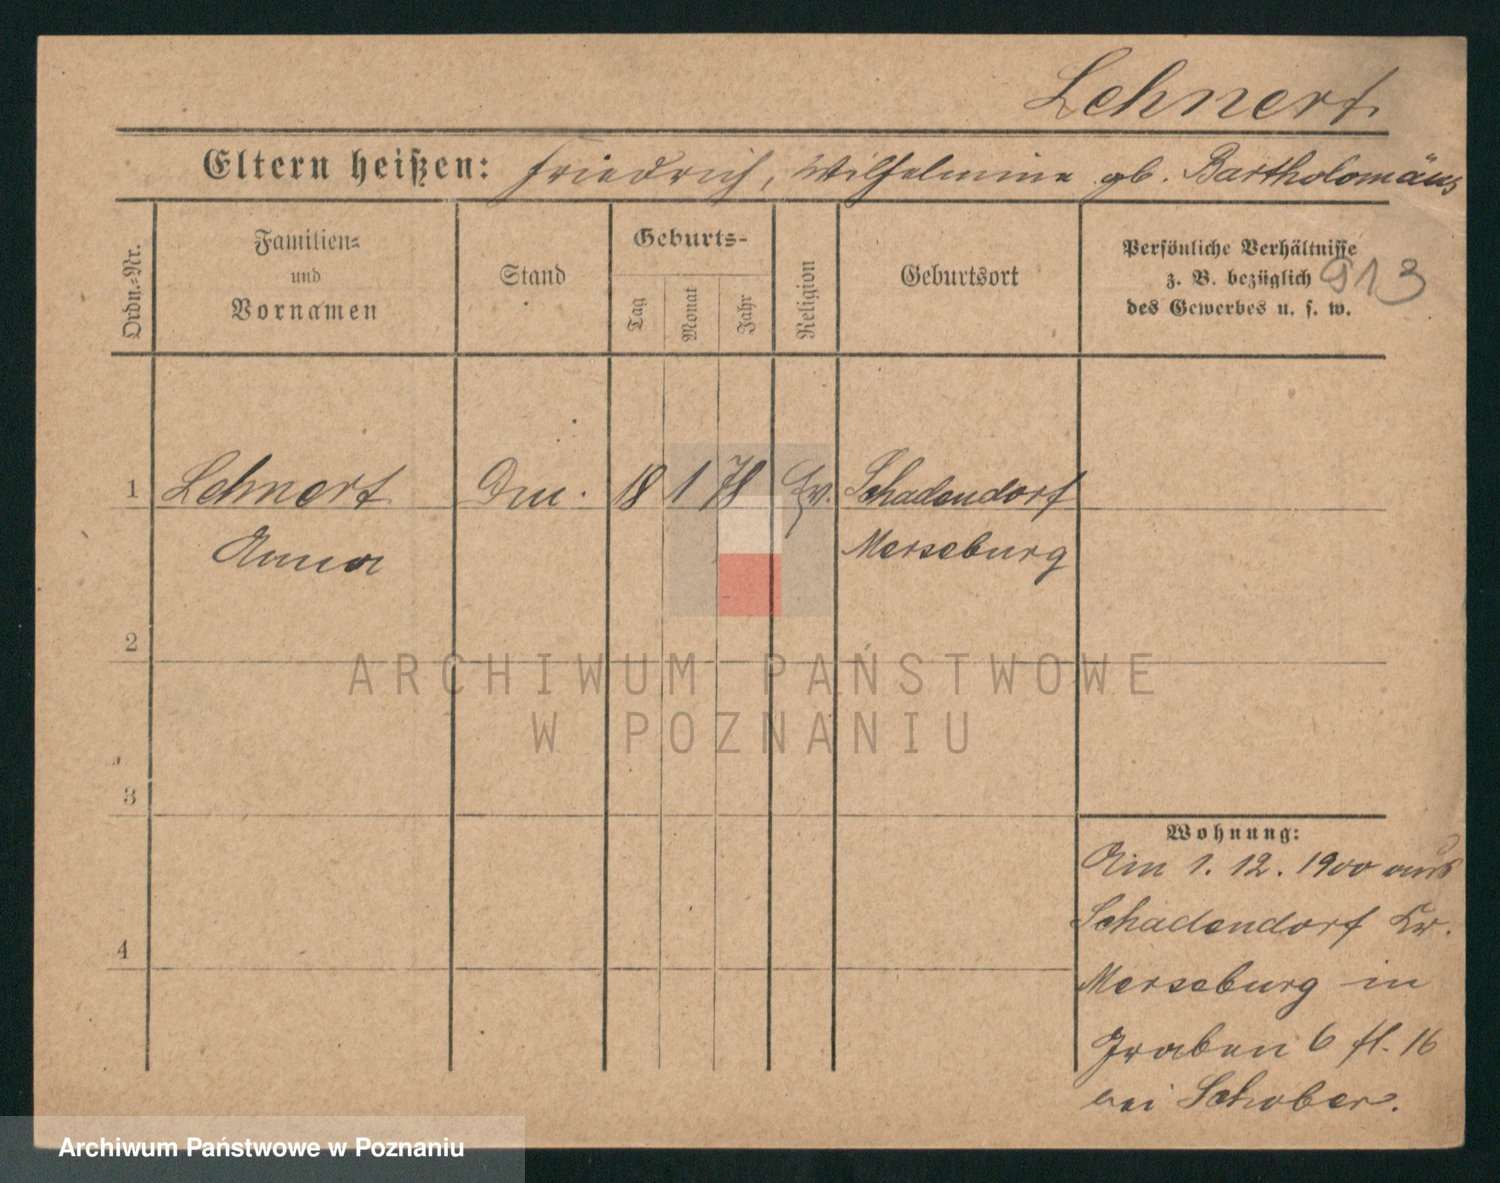 Lehnert
Eltern heißen: Friedrich, Wilhelmine gb. Bartholomäus
Ordn.-Nr.
Familien-
und
Vornamen
Stand
Geburts-
Tag
Monat
Jahr
Religion
Geburtsort
Persönliche Verhältnisse
z. B. bezüglich
des Gewerbes u. s. w.
913
1 Lehnert Dm. 18 1 78 Ev. Schadendorf
Anna Merseburg
2
ARCHIWUM PAŃSTWOWE
W POZNANIU
3
Wohnung:
Am 1. 12. 1900 aus
Schadendorf Kr.
4
Merseburg in
Graben 6 fl. 16
bei Schober.
Archiwum Państwowe w Poznaniu